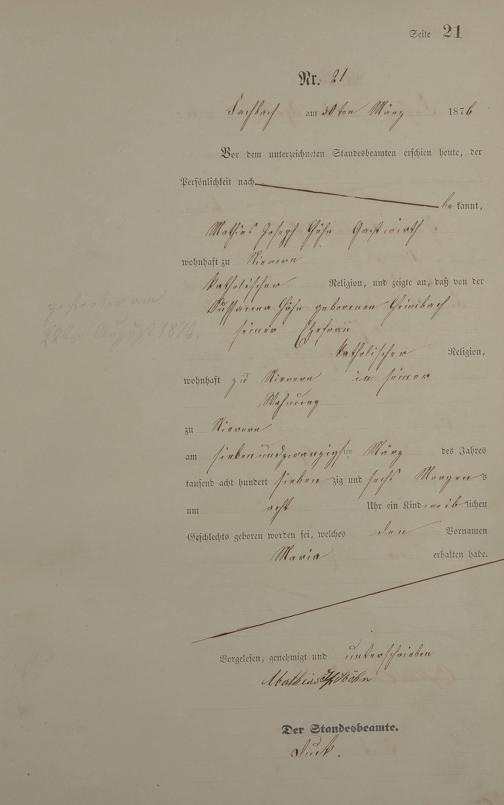 Seite 21
Nr. 21
Fachbach am 30ten März 1876
Vor dem unterzeichneten Standesbeamten erschien heute, der
Persönlichkeit nach
bekannt,
Mathias Joseph Höhn Gastwirth
wohnhaft zu Nievern
katholischer Religion, und zeigte an, daß von der
Susanna Höhn geborenen
seiner Ehefrau
katholischer Religion,
wohnhaft zu Nievern in seiner
Wohnung
zu Nievern
am siebenundzwanzigsten März des Jahres
tausend acht hundert siebenzig und sechs Morgens
um acht Uhr ein Kind weiblichen
Geschlechts geboren worden sei, welches den Vornamen
Maria erhalten habe.
gestorben am
22ten August 1876.
Vorgelesen, genehmigt und unterschrieben
Mathias Höhn
Der Standesbeamte.